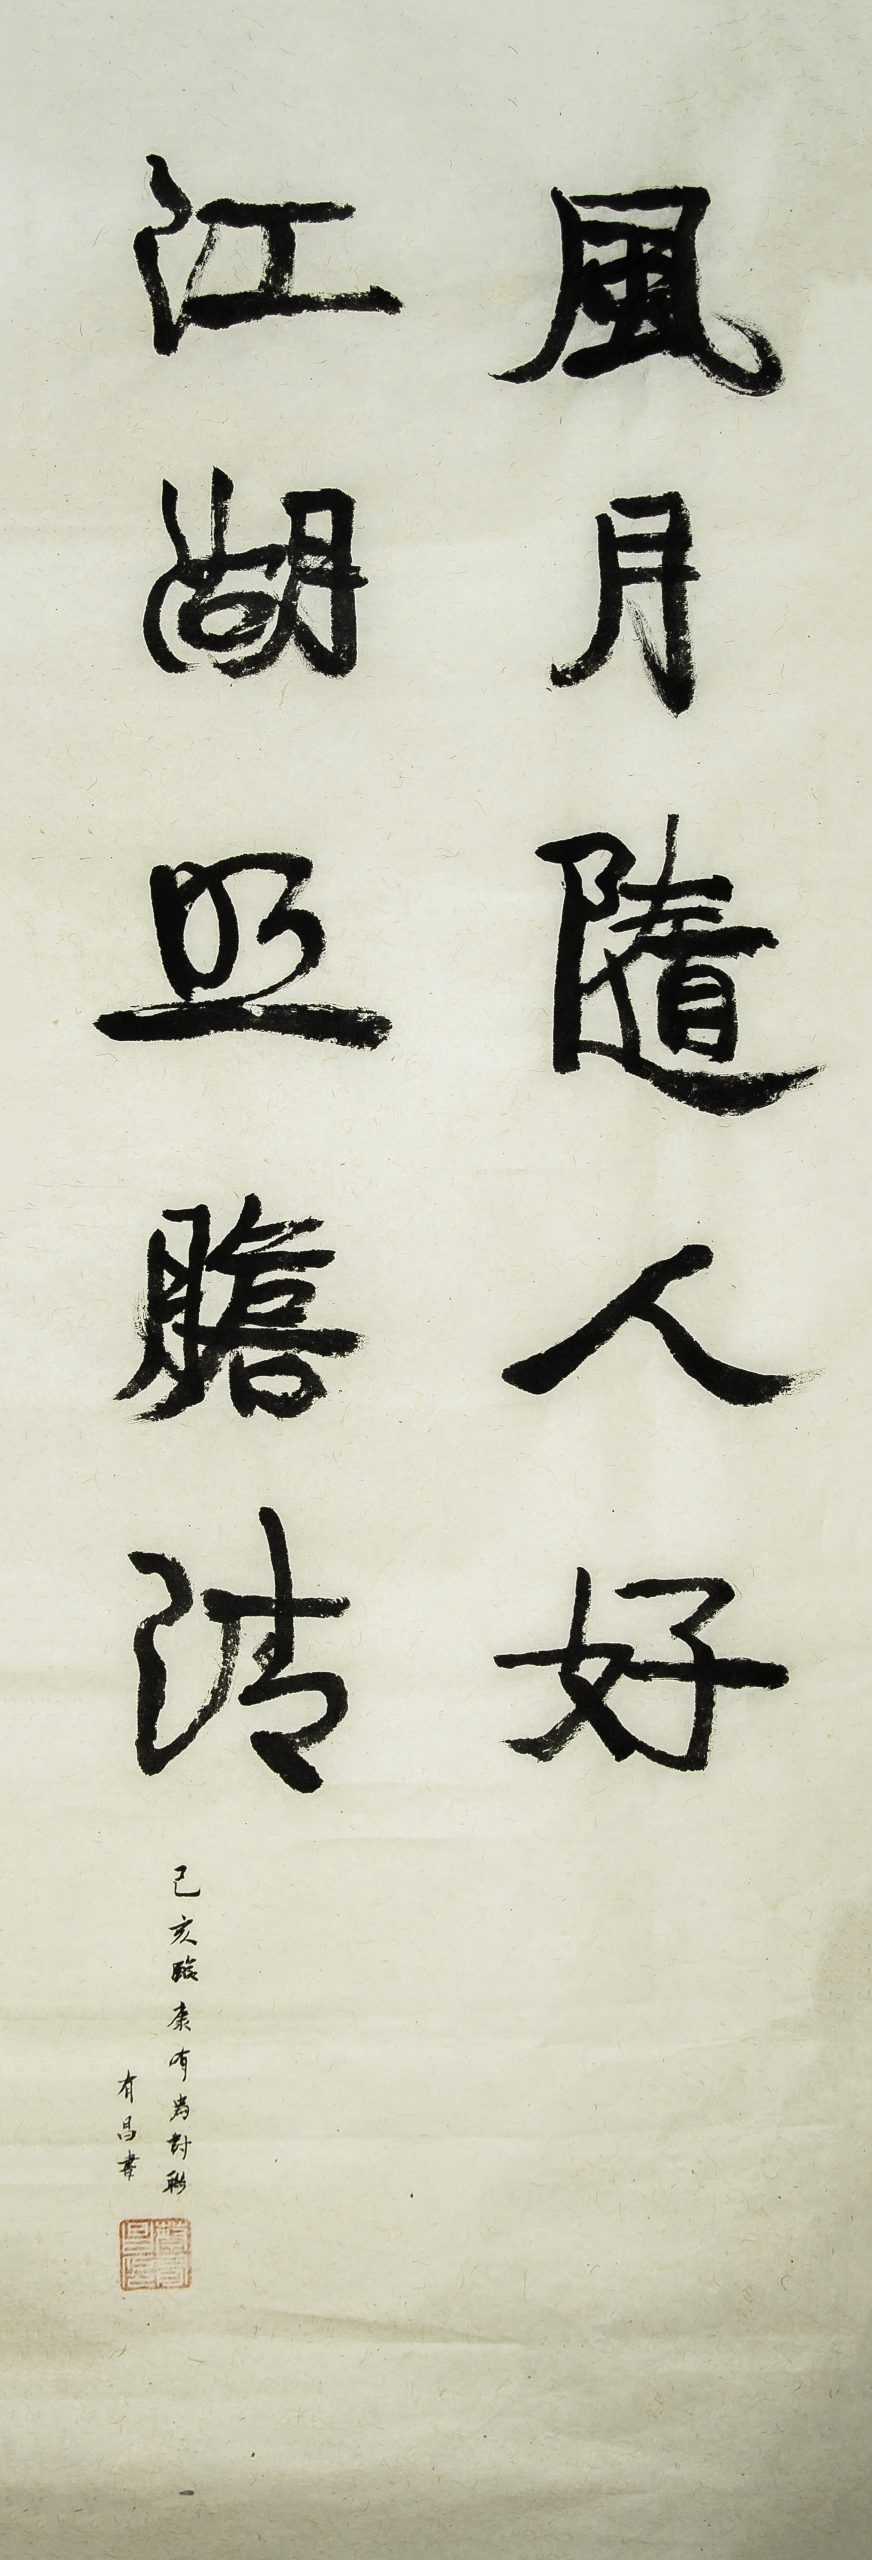 風月隨人好
江湖照膽清
己亥臨康有為對聯
有昌書